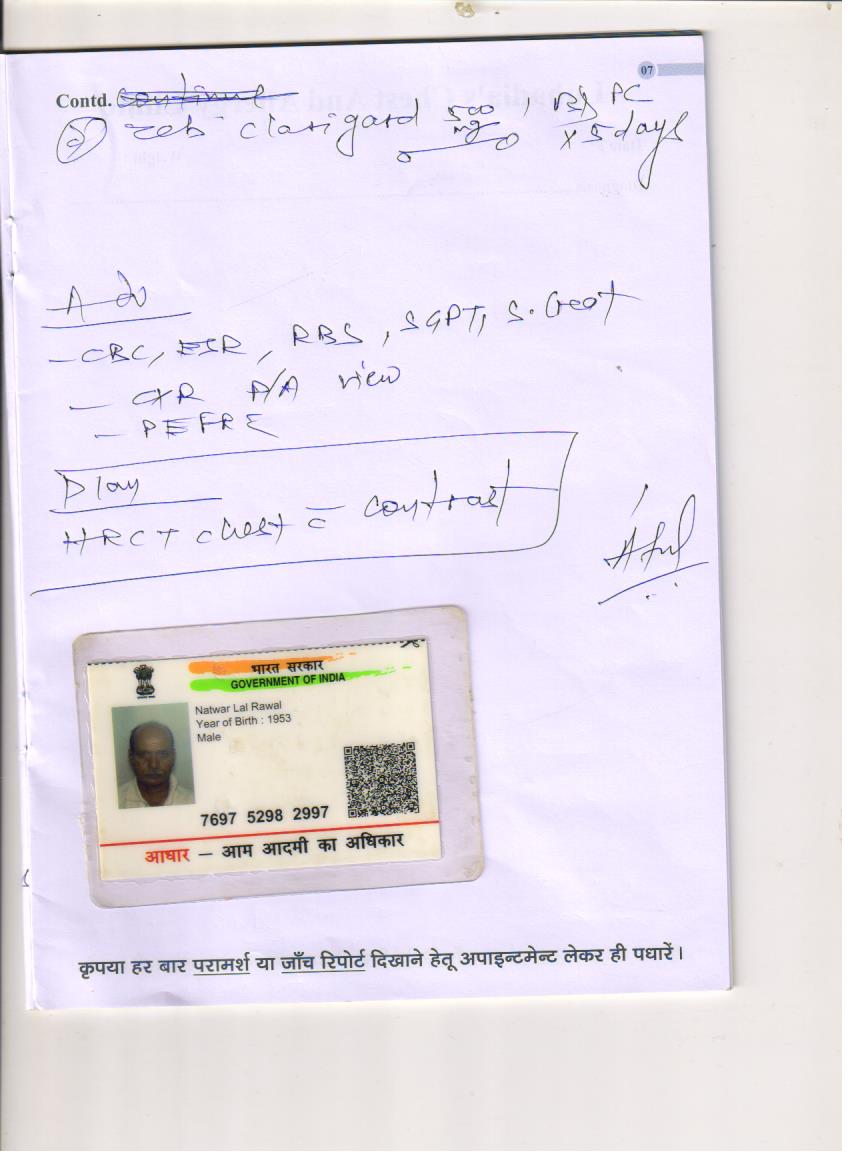 07
Contd. continue
② Tab clarigard 500 mg, BD PC
x 5 days
Adv
- CBC, ESR, RBS, SGPT, S. Creat
- CXR P/A view
- PEFR
Plan
HRCT chest c̄ contrast
भारत सरकार
GOVERNMENT OF INDIA
Natwar Lal Rawal
Year of Birth : 1953
Male
7697 5298 2997
आधार – आम आदमी का अधिकार
कृपया हर बार परामर्श या जाँच रिपोर्ट दिखाने हेतू अपाइन्टमेन्ट लेकर ही पधारें।